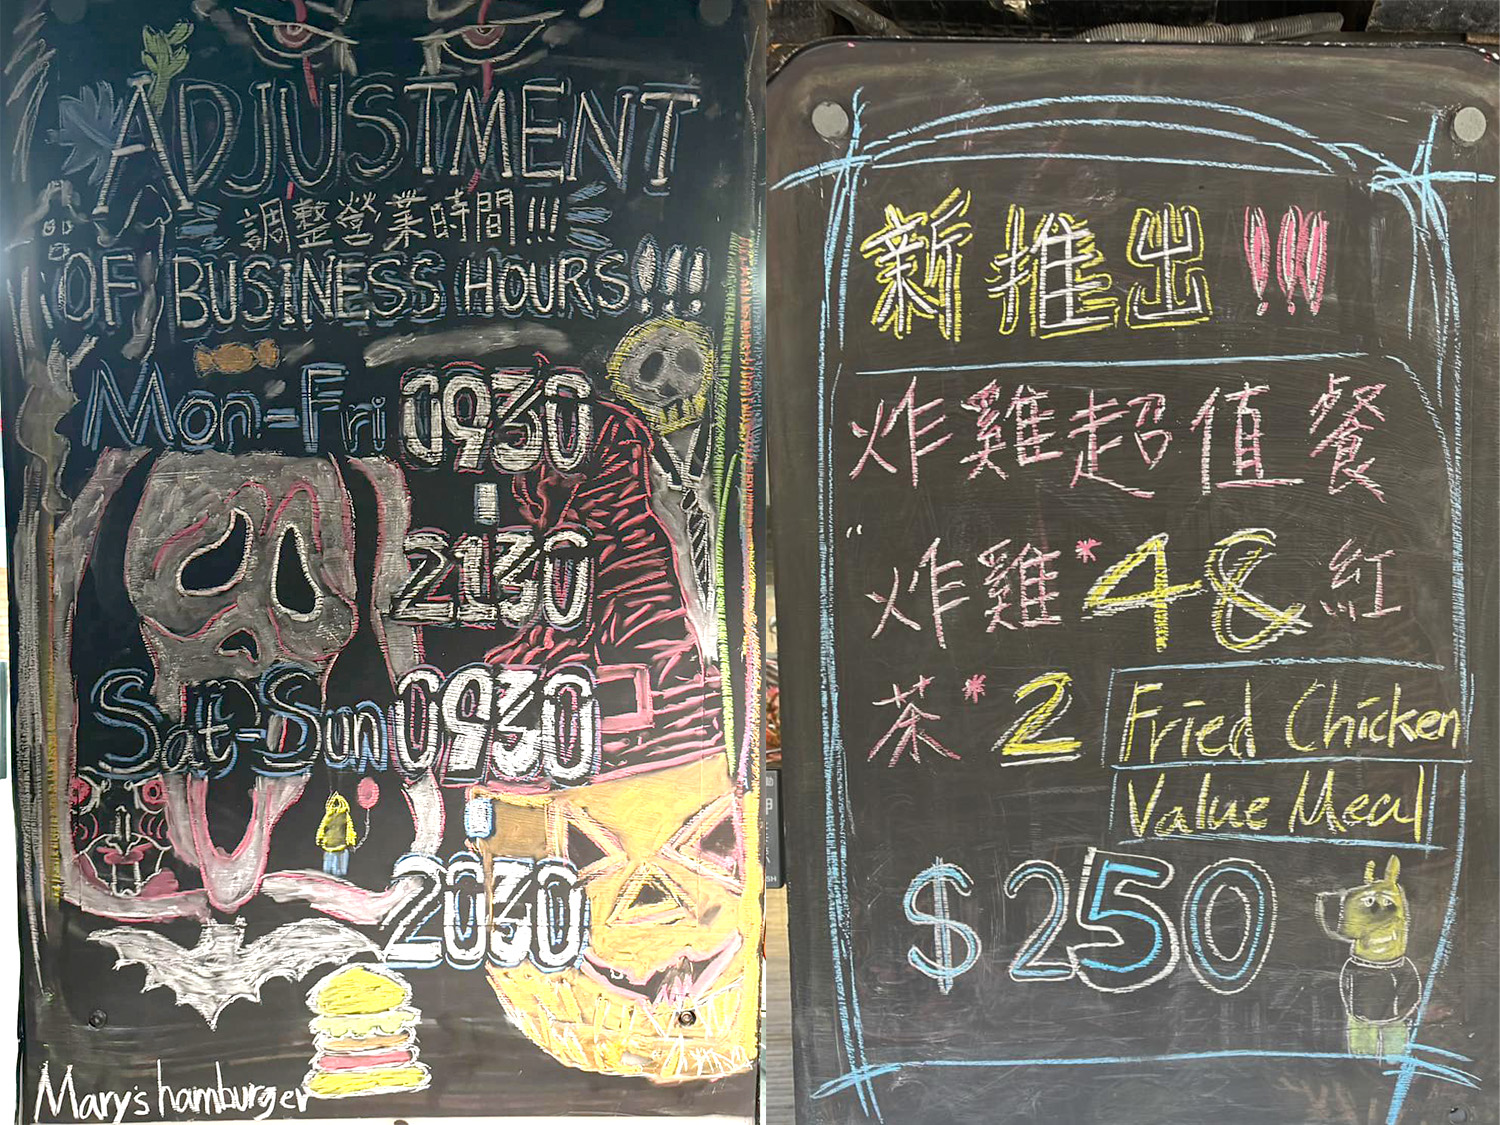 ADJUSTMENT
調整營業時間!!!
OF BUSINESS HOURS!!!
Mon-Fri 0930
-
2130
Sat-Sun 0930
-
2030
Mary's hamburger
新推出!!!
炸雞超值餐
炸雞*48紅
茶*2 Fried Chicken
Value Meal
$250